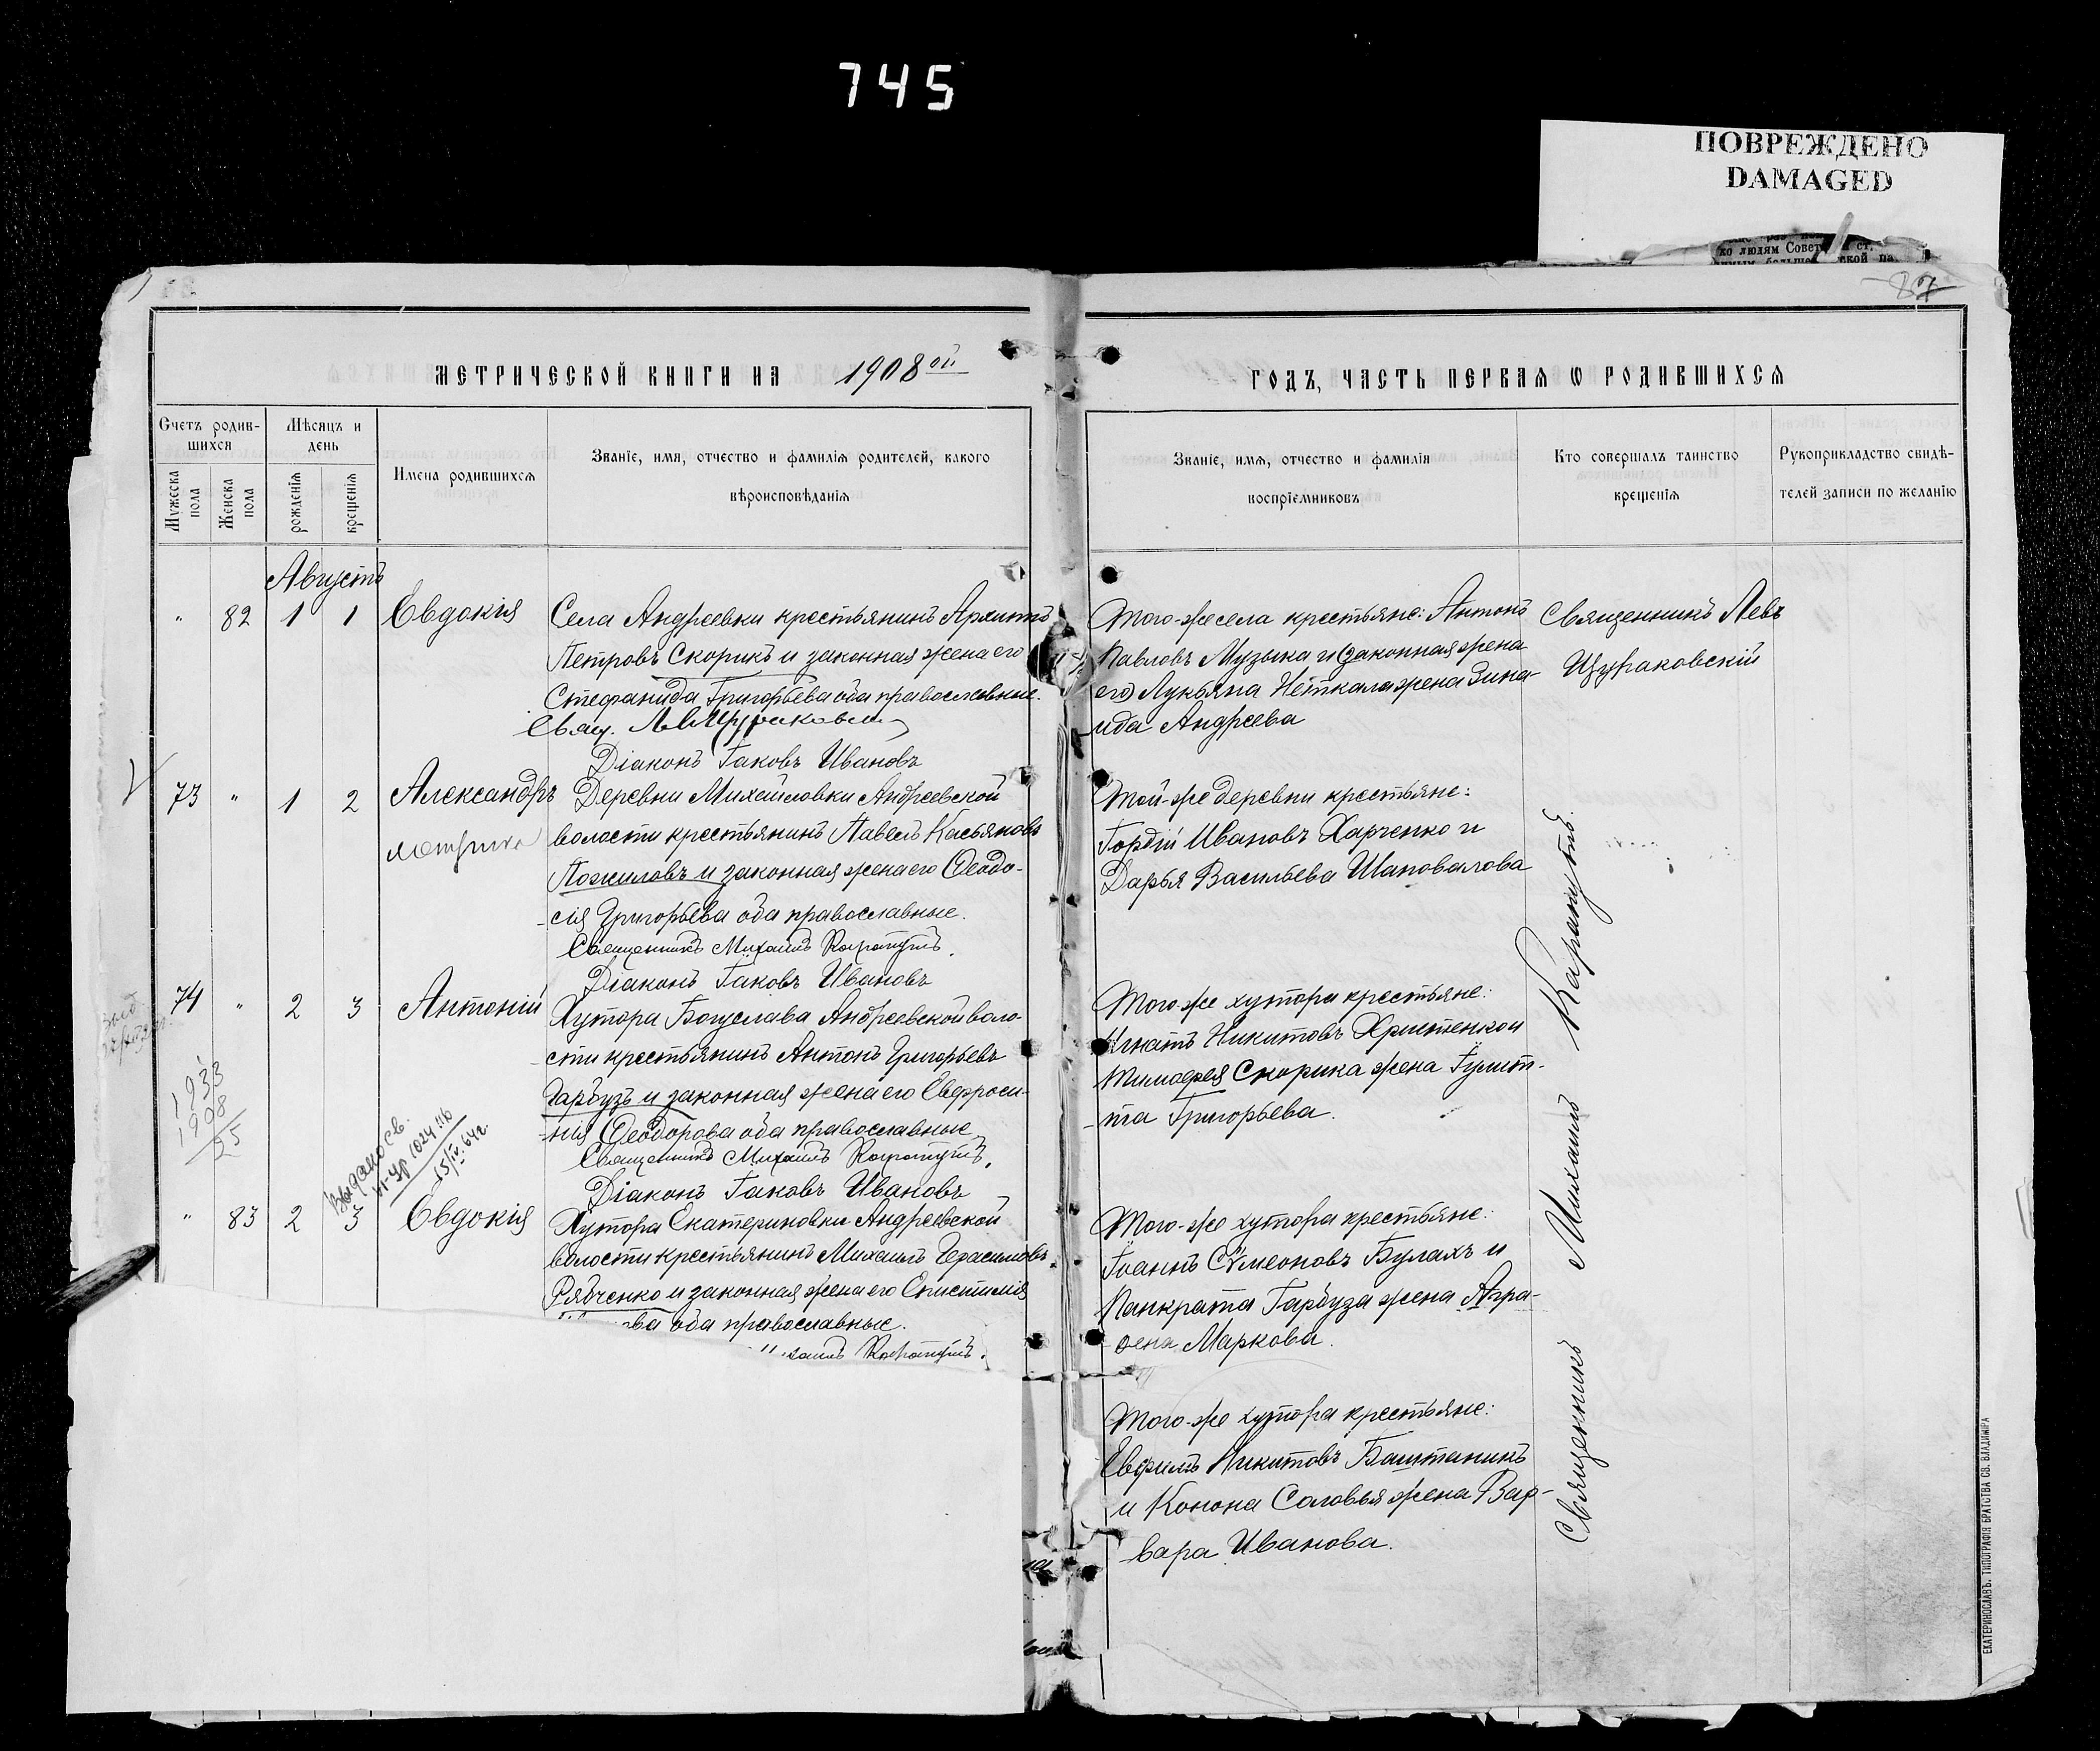 745
ПОВРЕЖДЕНО
DAMAGED
хо людям Совет
87
МЕТРИЧЕСКОЙ КНИГИ НА 1908ой
ГОДЪ, ЧАСТЬ ПЕРВАЯ Ѡ РОДИВШИХСЯ
Счетъ родив-
шихся
Мужеска пола
Женска пола
Мѣсяцъ и
день
рожденія
крещенія
Имена родившихся
Званіе, имя, отчество и фамилія родителей, какого
вѣроисповѣданія
Званіе, имя, отчество и фамилія
воспріемниковъ
Кто совершалъ таинство
крещенія
Рукоприкладство свидѣ-
телей записи по желанію
Августъ
" 82 1 1 Евдокія
Села Андреевки крестьянинъ Архипъ
Петровъ Скорикъ и законная жена его
Стефанида Григорьева оба православные.
Свящ.
Діаконъ Іаковъ Ивановъ
Того-же села крестьяне: Антонъ
Павловъ Музыка и (законная жена
его) Лукьяна Нёткала жена Зина-
ида Андреева
Священникъ Левъ
Щураковскій
73 " 1 2 Александръ
Деревни Михайловки Андреевской
волости крестьянинъ Павелъ Касьяновъ
Пожиловъ и законная жена его Ѳеодо-
сія Григорьева оба православные.
Священникъ Михаилъ Карапутъ.
Діаконъ Іаковъ Ивановъ
Той-же деревни крестьяне:
Гордій Ивановъ Харченко и
Дарья Васильева Шаповалова
74 " 2 3 Антоній
Хутора Богуслава Андреевской воло-
сти крестьянинъ Антонъ Григорьевъ
Гарбузъ и законная жена его Евфроси-
нія Ѳеодорова оба православные
Священникъ Михаилъ Карапутъ.
Діаконъ Іаковъ Ивановъ
Того-же хутора крестьяне:
Игнатъ Никитовъ Христенко и
Тимофея Скорика жена Іулит-
та Григорьева.
1933
1908
25
Выдано св.
15/IV. 64г.
" 83 2 3 Евдокія
Хутора Екатериновки Андреевской
волости крестьянинъ Михаилъ Герасимовъ
Рябченко и законная жена его Епистимія
ва оба православные.
Карапутъ.
Того-же хутора крестьяне:
Іоаннъ Сѵмеоновъ Булахъ и
Панкрата Гарбуза жена Агра-
фена Маркова.
Того-же хутора крестьяне:
Евфимъ Никитовъ Баштаникъ
и Конона Соловья жена Вар-
вара Иванова.
Священникъ Михаилъ Карапутъ.
ЕКАТЕРИНОСЛАВЪ. ТИПОГРАФІЯ БРАТСТВА СВ. ВЛАДИМІРА